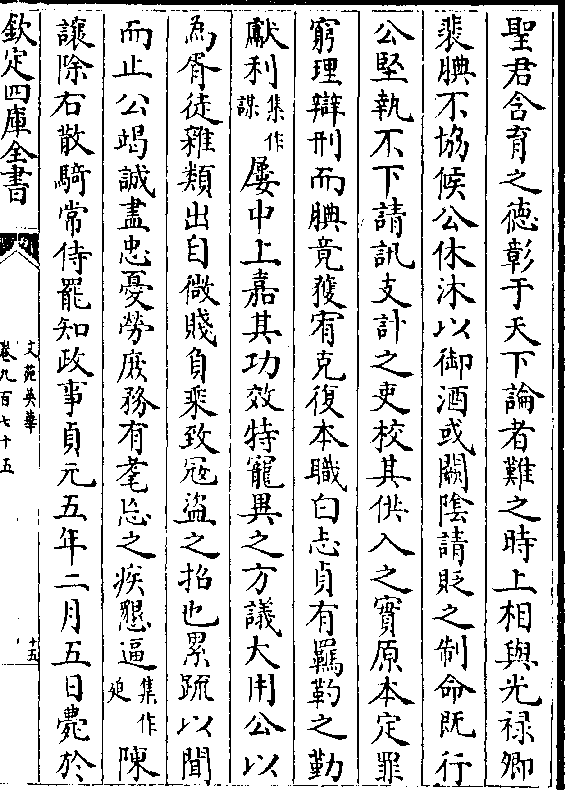 聖君含育之德彰于天下論者難之時上相與光禄卿
裴腆不協候公休沐以御酒或闕隂請貶之制命既行
公堅執不下請訊支計之吏校其供入之實原本定罪
窮理辯刑而腆竟獲宥克復本職白志貞有羈靮之勤
獻利集作謀屢中上嘉其功效特寵異之方議大用公以
為胥徒雜類出自微賤負乗致冦盗之招也累疏以聞
而止公竭誠盡忠憂勞庶務有耄忘之疾懇逼集作廹陳
讓除右散騎常侍罷知政事貞元五年二月五日薨於
欽定四庫全書
文苑英華
卷九百七十五
十五